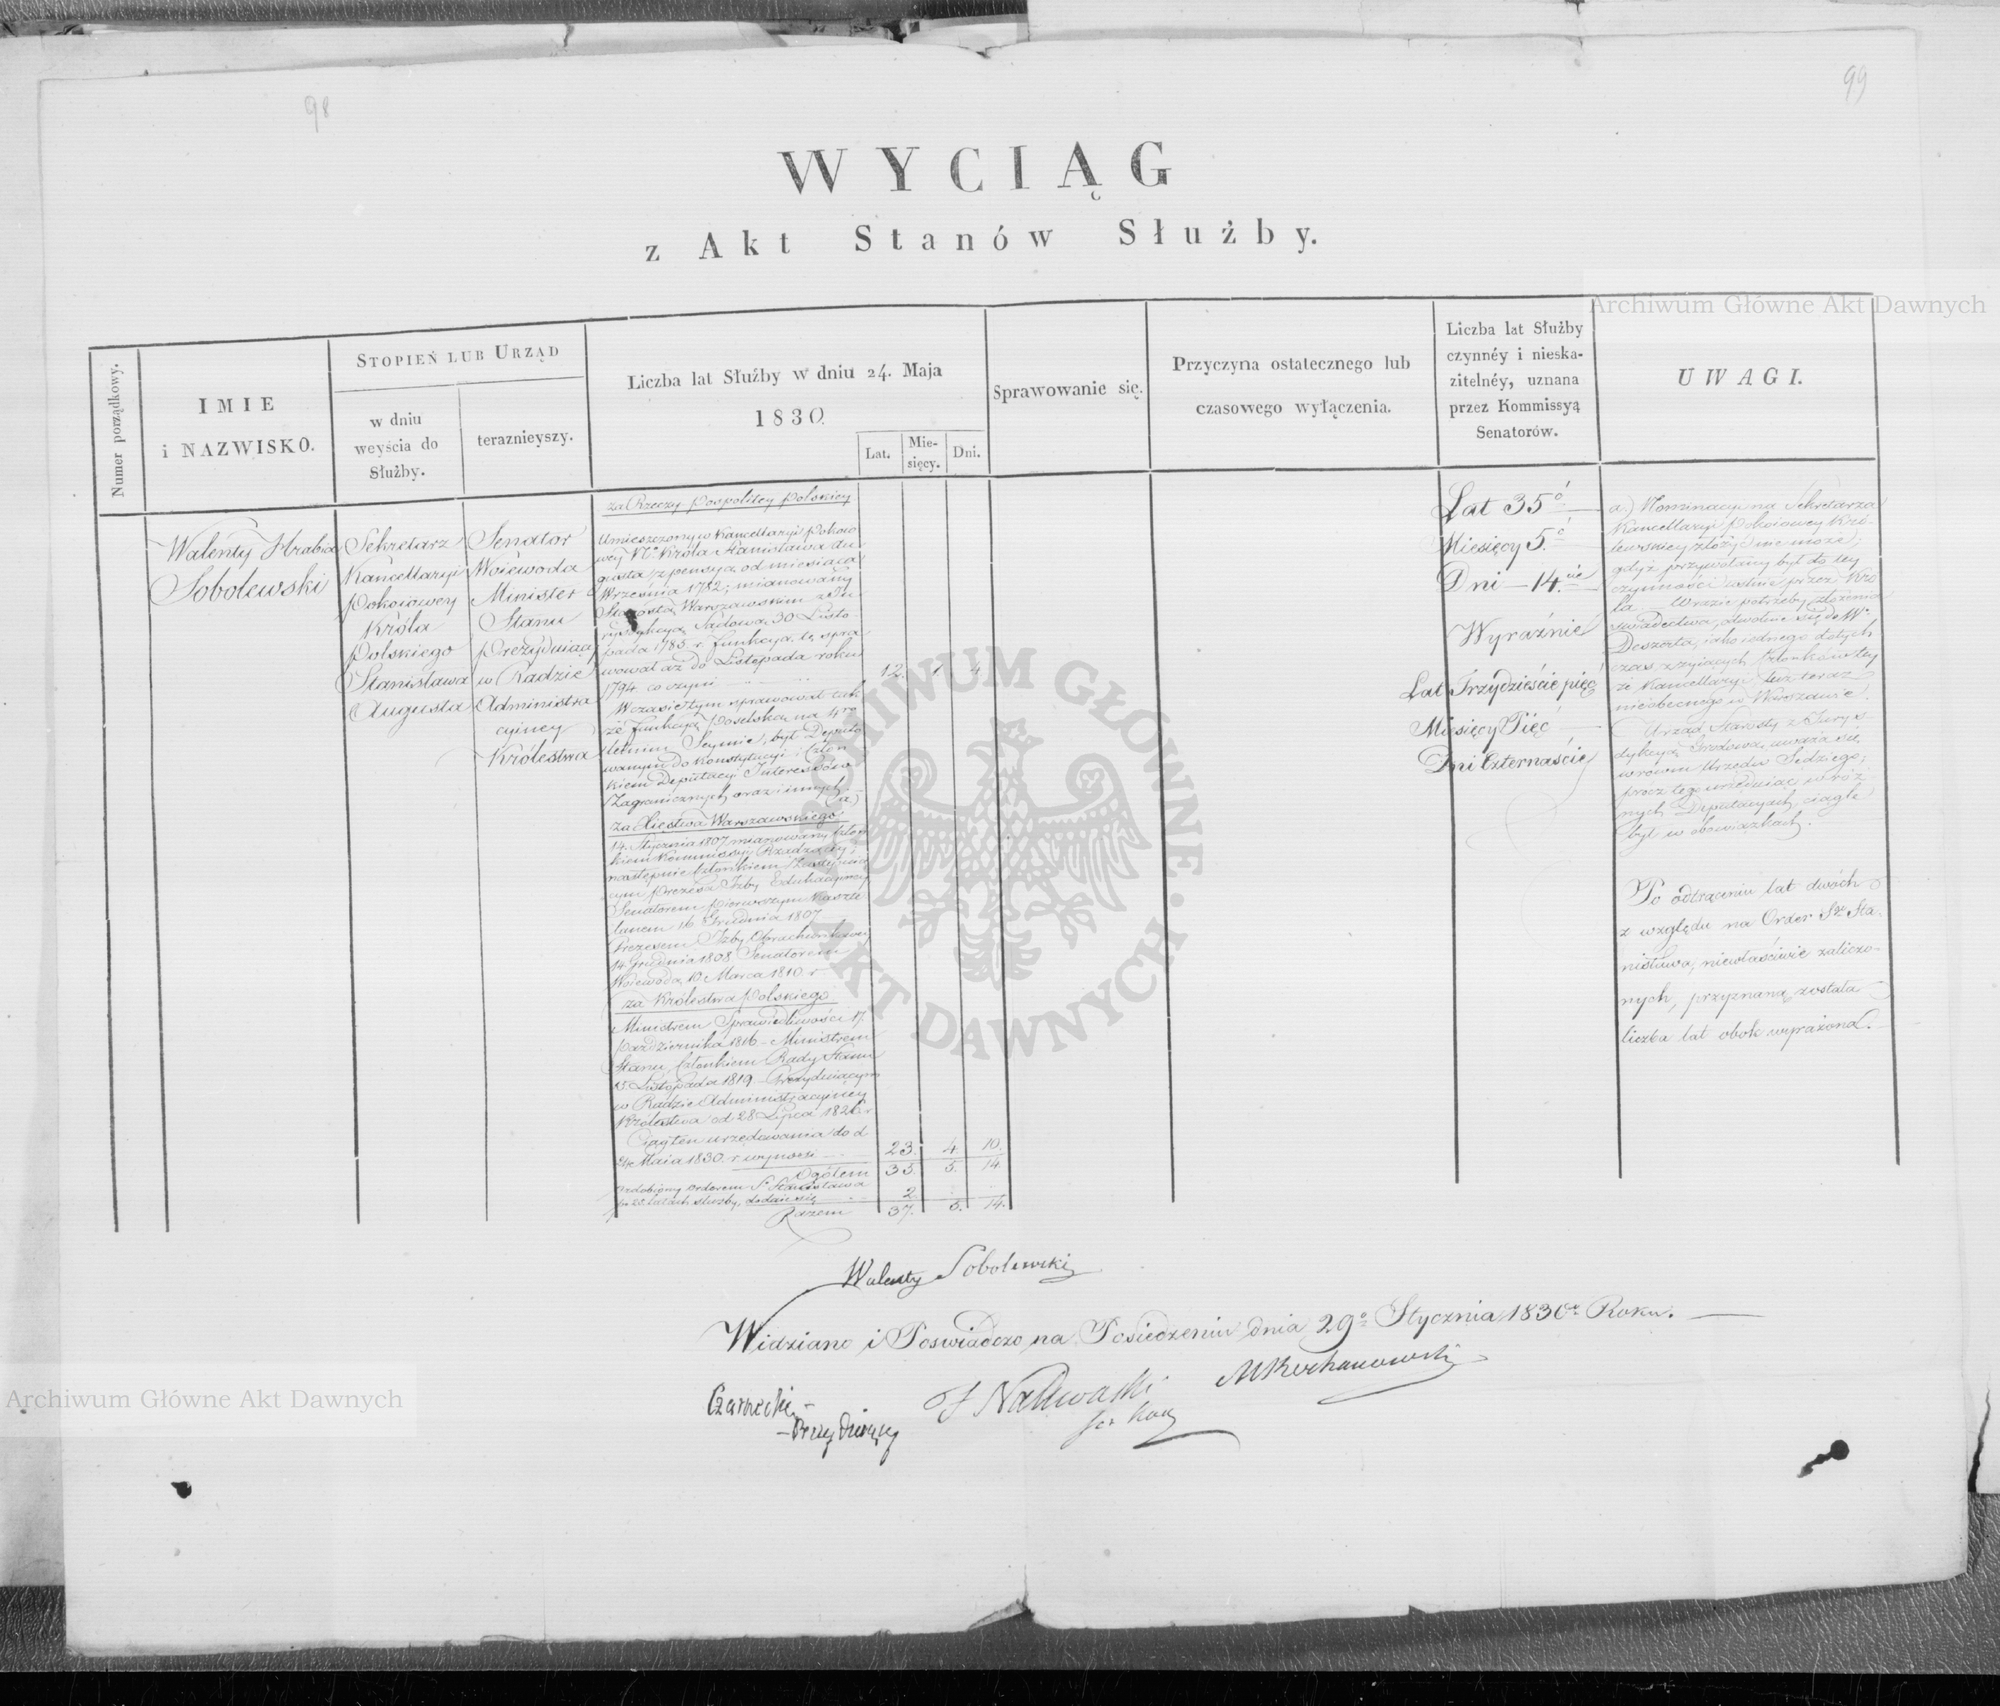 98
99
WYCIĄG
z Akt Stanów Służby.
Numer porządkowy.
IMIE
i NAZWISKO.
STOPIEŃ LUB URZĄD
w dniu
weyścia do
Służby.
teraznieyszy.
Liczba lat Służby w dniu 24. Maja
1830.
Lat.
Mie-
sięcy.
Dni.
Sprawowanie się.
Przyczyna ostatecznego lub
czasowego wyłączenia.
Liczba lat Służby
czynnéy i nieska-
zitelnéy, uznana
przez Kommissyą
Senatorów.
UWAGI.
Walenty Hrabia
Sobolewski
Sekretarz
Kancellaryi
Pokoiowey
Króla
Polskiego
Stanisława
Augusta
Senator
Woiewoda
Minister
Stanu
Prezyduiący
w Radzie
Administra
cyiney
Królestwa
za Rzeczy Pospolitey Polskiey
Umieszczony w Kancellaryi Pokoio
wey Króla Stanisława Au
gusta z pensyą od miesiąca
Września 1782; mianowany
Starostą Warszawskim z Ju
rysdykcyą Sądową 30 Listo-
pada 1785 r. funkcyą tę spra
wował aż do Listopada roku
1794 co czyni
12. 1. 4
W czasie tym sprawował tak
że funkcyą Poselską na 4ro
letnim Seymie, był Deputo
wanym do Konstytucyi i Człon
kiem Deputacyi Interessów
Zagranicznych oraz innych
(a)
za Xięstwa Warszawskiego
14. Stycznia 1807 mianowany Człon
kiem Kommissyi Rządzącey,
następnie Członkiem Zastępuią
cym Prezesa Izby Edukacyiney
Senatorem pierwszym Kaszte
lanem 16 Grudnia 1807
Prezesem Izby Obrachunkowey
14. Grudnia 1808 Senatorem
Woiewodą 10 Marca 1810 r
za Królestwa Polskiego
Ministrem Sprawiedliwości 17.
Października 1816 - Ministrem
Stanu, Członkiem Rady Stanu
15. Listopada 1819 - Prezyduiącym
w Radzie Administracyiney
Królestwa od 28 Lipca 1826 r
Ciąg ten urzędowania do d
24 Maia 1830. r wynosi
23. 4. 10.
Ogółem 35. 5. 14.
Ozdobiony orderem S. Stanisława
po 20. latach służby, dodaie się 2
Razem 37. 5. 14.
Lat 35
Miesięcy 5.
Dni - 14.
Wyraźnie
Lat Trzydzieście pięć
Miesięcy Pięć
Dni Czternaście
a) Nominacyi na Sekretarza
Kancellaryi Pokoiowey Kró-
lewskiey złożyć nie może;
gdyż przywołany był do tey
czynności ustnie przez Kró
la. W razie potrzeby złożenia
świadectwa, odwołuie się do W.
Deszerta, iako iednego dotych
czas z żyiących Członków tey
że Kancellaryi lecz teraz
nieobecnego w Warszawie.
Urząd Starosty z Jurys
dykcyą Grodową uważa się
w równi Urzędu Sędziego;
procz tego urzęduiąc w róż
nych Deputacyach ciągle
był w obowiązkach.
Po odtrąceniu lat dwóch
z względu na Order Sgo Sta-
nisława, niewłaściwie zaliczo-
nych, przyznaną została
liczba lat obok wyrażona.
Walenty Sobolewski
Widziano i Poswiadczono na Posiedzeniu dnia 29 Stycznia 1830 Roku.
Czarnecki
Prezyduiący
J Nakwaski
M Kochanowski
Archiwum Główne Akt Dawnych
Archiwum Główne Akt Dawnych
ARCHIWUM GŁÓWNE
AKT DAWNYCH